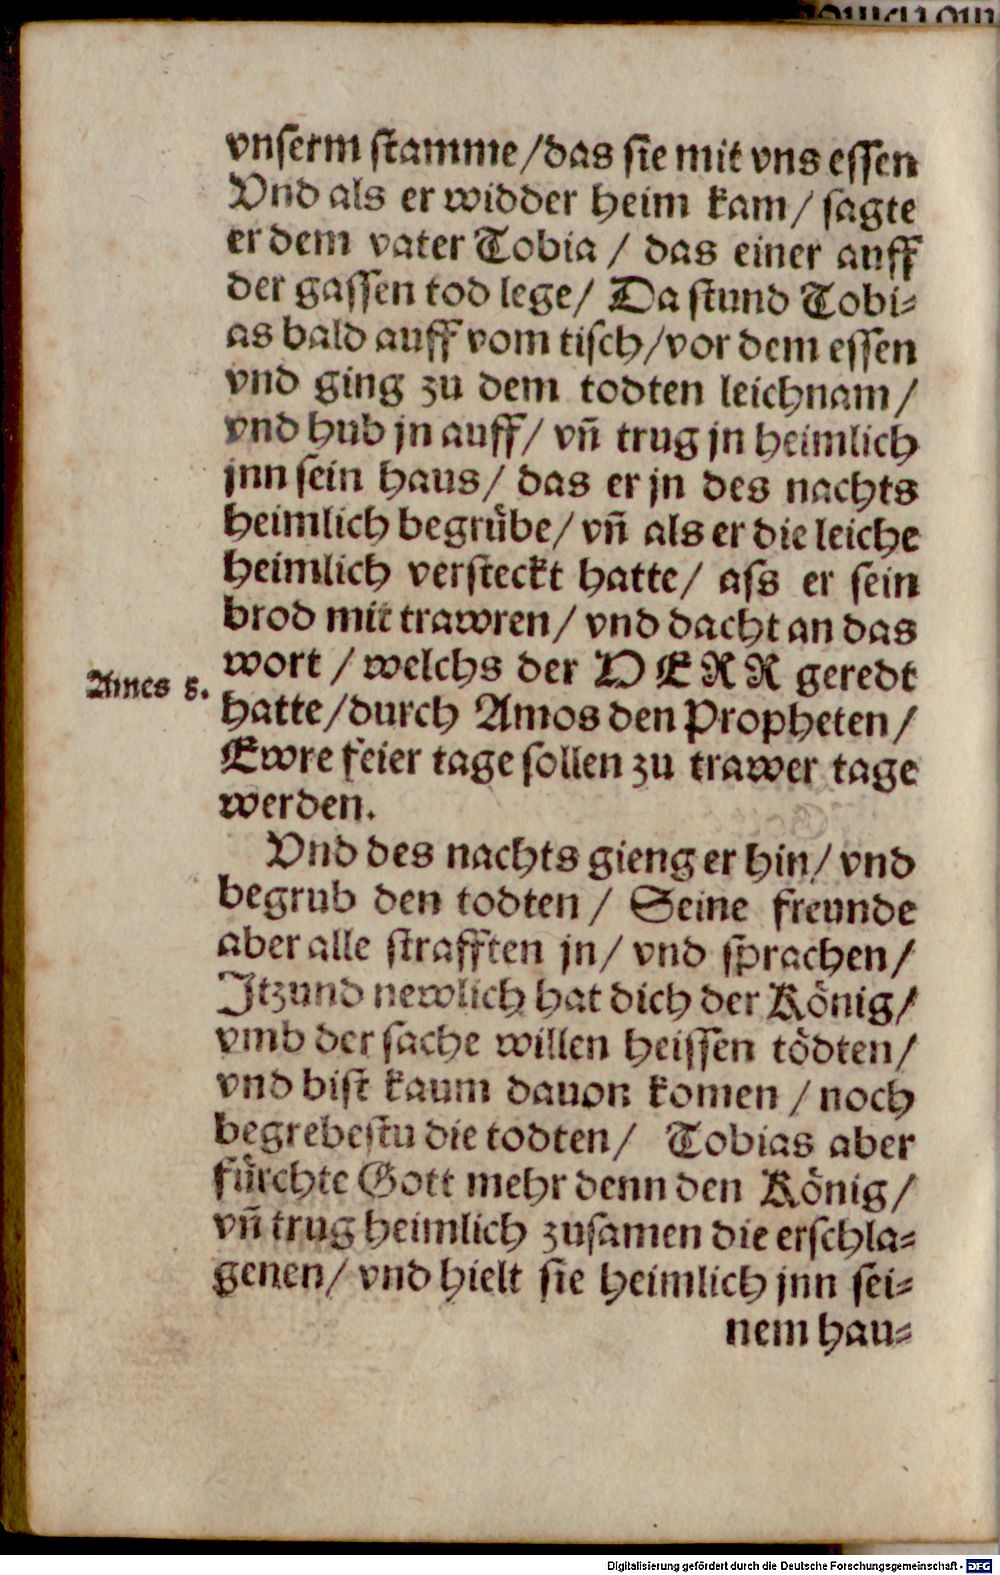 vnserm stamme/das sie mit vns essen
Vnd als er widder heim kam/ sagte
er dem vater Tobia / das einer auff
der gassen tod lege/ Da stund Tobi⸗
as bald auff vom tisch/vor dem essen
vnd ging zu dem todten leichnam/
vnd hub jn auff/ vn̄ trug jn heimlich
jnn sein haus/ das er jn des nachts
heimlich begrübe/ vn̄ als er die leiche
heimlich versteckt hatte/ ass er sein
brod mit trawren/ vnd dacht an das
wort / welchs der HERR geredt
Amos 8.
hatte/durch Amos den Propheten/
Ewre feier tage sollen zu trawer tage
werden.
Vnd des nachts gieng er hin/ vnd
begrub den todten/ Seine freunde
aber alle strafften jn/ vnd sprachen/
Itzund newlich hat dich der König/
vmb der sache willen heissen tödten/
vnd bist kaum dauon komen / noch
begrebestu die todten/ Tobias aber
fürchte Gott mehr denn den König/
vn̄ trug heimlich zusamen die erschla⸗
genen/ vnd hielt sie heimlich jnn sei⸗
nem hau⸗
Digitalisierung gefördert durch die Deutsche Forschungsgemeinschaft - DFG